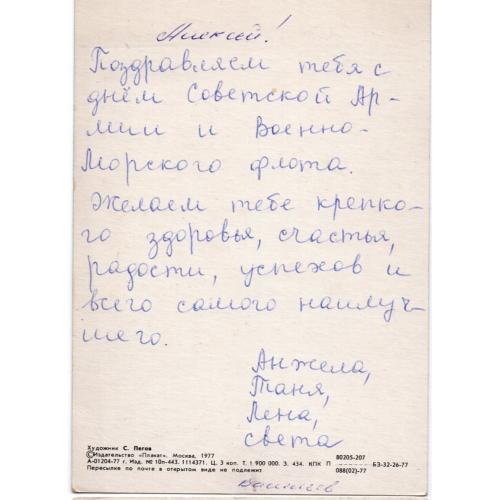 Алексей!
Поздравляем тебя с
днём Советской Ар-
мии и Военно-
Морского флота.
Желаем тебе крепко-
го здоровья, счастья,
радости, успехов и
всего самого наилуч-
шего.
Анжела,
Таня,
Лена,
Света
Художник С. Пегов
©Издательство «Плакат». Москва, 1977
А-01204-77 г. Изд. № 10п-443. 1114371. Ц. 3 коп. Т. 1 900 000. З. 434. КПК П
Пересылке по почте в открытом виде не подлежит
80205-207
БЗ-32-26-77
088(02)-77